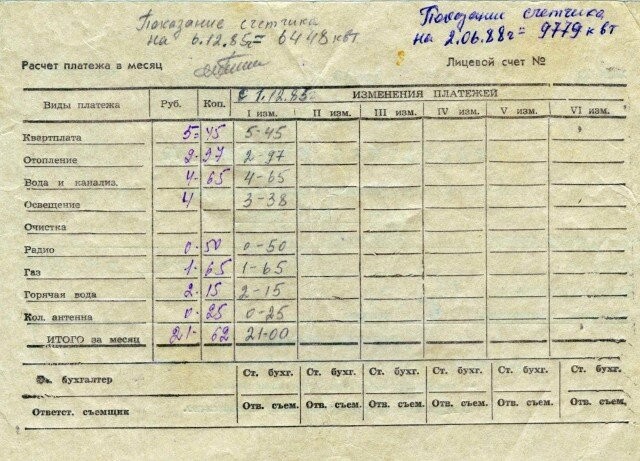 Показание счетчика
на 6.12.85г= 6448 квт
Показании счетчика
на 2.06.88г= 9779 квт
Расчет платежа в месяц
Лицевой счет №
Виды платежа Руб. Коп. с 1.12.85г ИЗМЕНЕНИЯ ПЛАТЕЖЕЙ
I изм. II изм. III изм. IV изм. V изм. VI изм.
Квартплата 5- 45 5-45
Отопление 2- 97 2-97
Вода и канализ. 4- 65 4-65
Освещение 4 3-38
Очистка
Радио 0- 50 0-50
Газ 1- 65 1-65
Горячая вода 2- 15 2-15
Кол. антенна 0- 25 0-25
ИТОГО за месяц 21- 62 21-00
бухгалтер Ст. бухг. Ст. бухг. Ст. бухг. Ст. бухг. Ст. бухг. Ст. бухг.
Ответст. съемщик Отв. съем. Отв. съем. Отв. съем. Отв. съем. Отв. съем. Отв. съем.